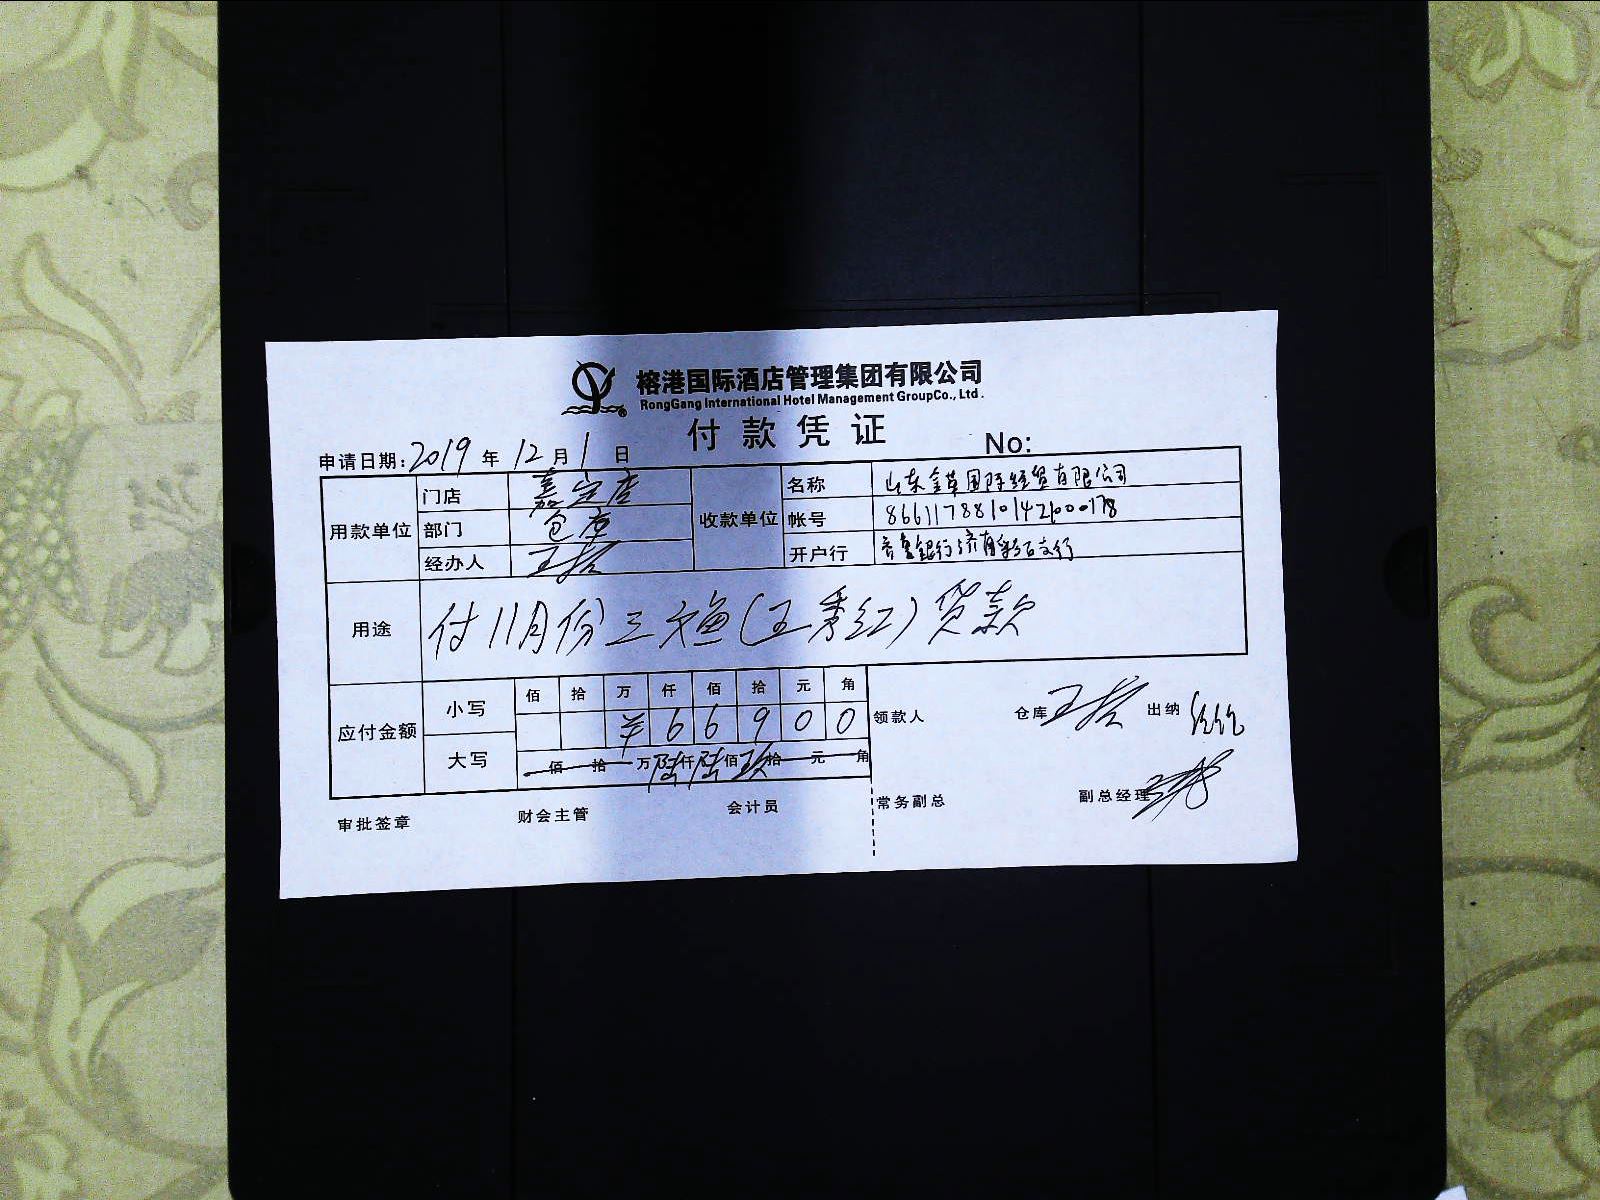 榕港国际酒店管理集团有限公司
RongGang International Hotel Management GroupCo., Ltd.
付款凭证
No:
申请日期:2019年12月1日
用款单位 门店 嘉定店 收款单位 名称 山东金草国际经贸有限公司
部门 仓库 帐号
经办人 开户行 齐鲁银行济南彩石支行
用途 付11月份三文鱼(王秀红)货款
应付金额 小写 佰 拾 万 仟 佰 拾 元 角
¥ 6 6 9 0 0
大写 佰 拾 万 陆仟 陆佰 玖拾 元 角
领款人 仓库 出纳
审批签章 财会主管 会计员 常务副总 副总经理